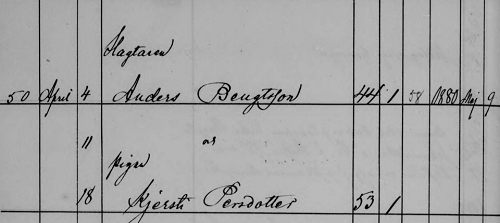 Slagtaren
50 April 4 Anders Bengtsson 44 1 58 1880 Maj 9
11 as
pigan
18 Kjersti Persdotter 53 1